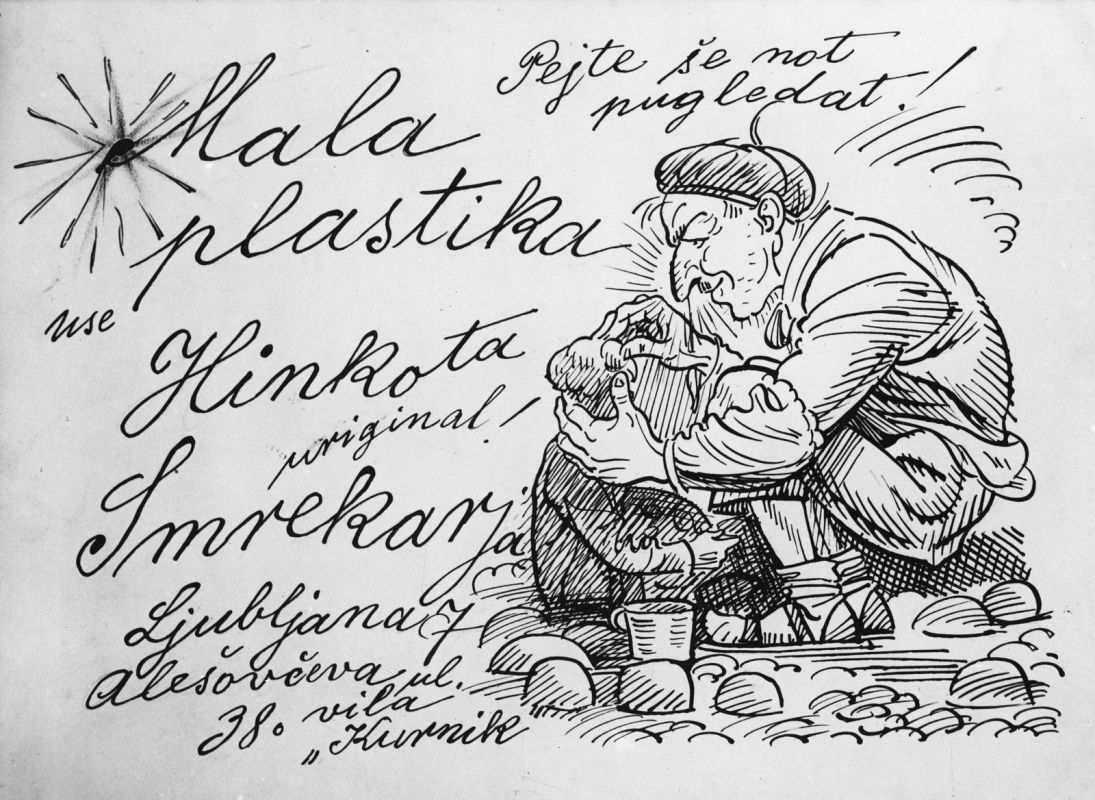 Pejte še not
pugledat!
Mala
plastika
use
Hinkota
uriginal!
Smrekarja
Ljubljana 7
Alešovčeva ul.
38. vila
„Kurnik"